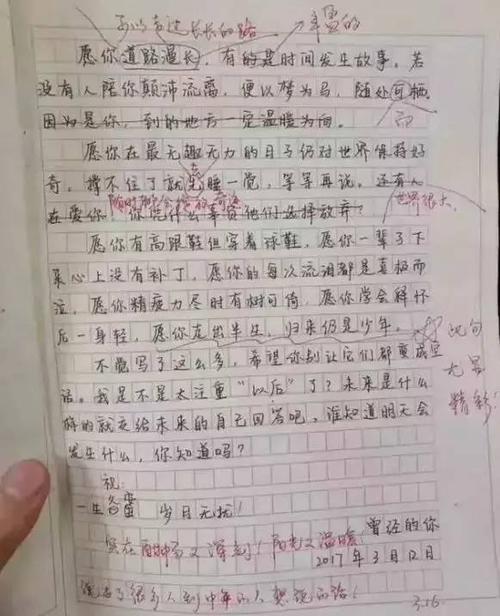 丰富的
愿你道路漫长，有的是时间发生故事。若
没有人陪你颠沛流离，便以梦为马，随处可栖
因为是你，到的地方一定温暖为向。
愿你在最无趣无力的日子仍对世界保持好
奇，撑不住了就先睡一觉，等等再说。还有人
在爱你，你凭什么辜负他们选择放弃？
世界很大
愿你有高跟鞋但穿着球鞋，愿你一辈子下
来心上没有补丁，愿你的每次流泪都是喜极而
泣，愿你精疲力尽时有树可倚，愿你学会释怀
后一身轻，愿你走出半生，归来仍是少年。
此句
尤显
精彩
不觉写了这么多，希望你别让它们都变成空
话。我是不是太注重“以后”了？未来是什么
样的就交给未来的自己回答吧，谁知道明天会
发生什么，你知道吗？
祝：
一生努力
岁月无扰！
曾经的你
实在酣畅又深刻！阳光又温暖
2017年3月12日
说出了很多人到中年的人想说的话！
3.16.